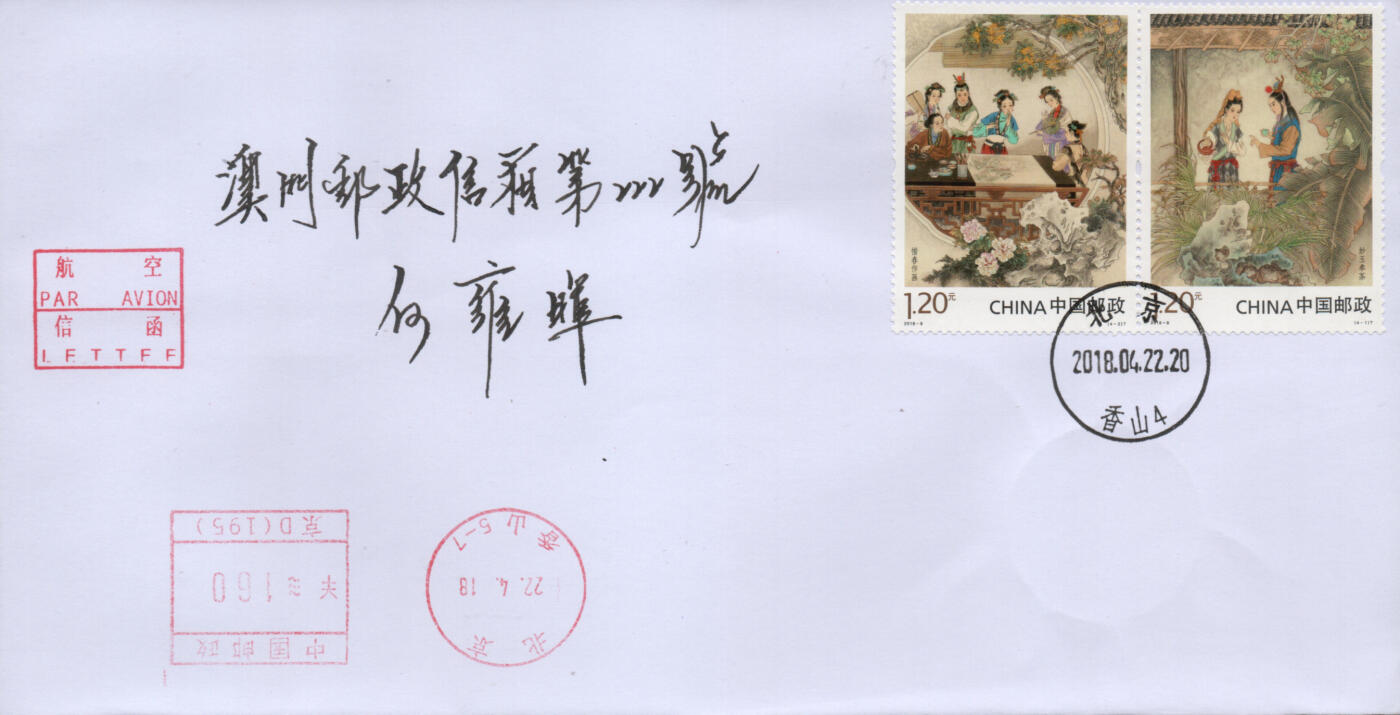 澳洲郵政信箱第222號
何雍暉
航 空
PAR AVION
信 函
LETTER
惜春作画
1.20元 CHINA 中国邮政
2018-8
妙玉奉茶
1.20元 CHINA 中国邮政
2018-8
北京
2018.04.22.20
香山4
京D(195)
≈160
中国邮政
香山5-7
22.4.18
北京